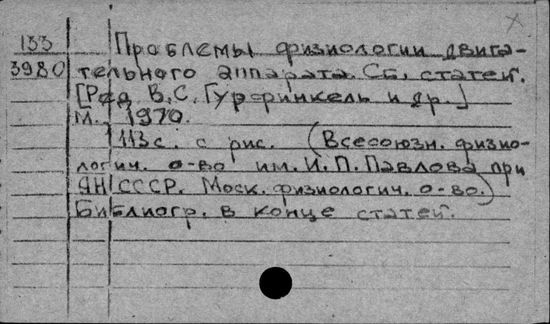 133 Проблемы физиологии двига-
3980 тельного аппарата. Сб. статей.
[Ред. В.С. Гурфинкель и др.]
М. 1970.
113 с. с рис. (Всесоюзн. физио-
логич. о-во им. И.П. Павлова при
АН СССР. Моск. физиологич. о-во.)
Библиогр. в конце статей.